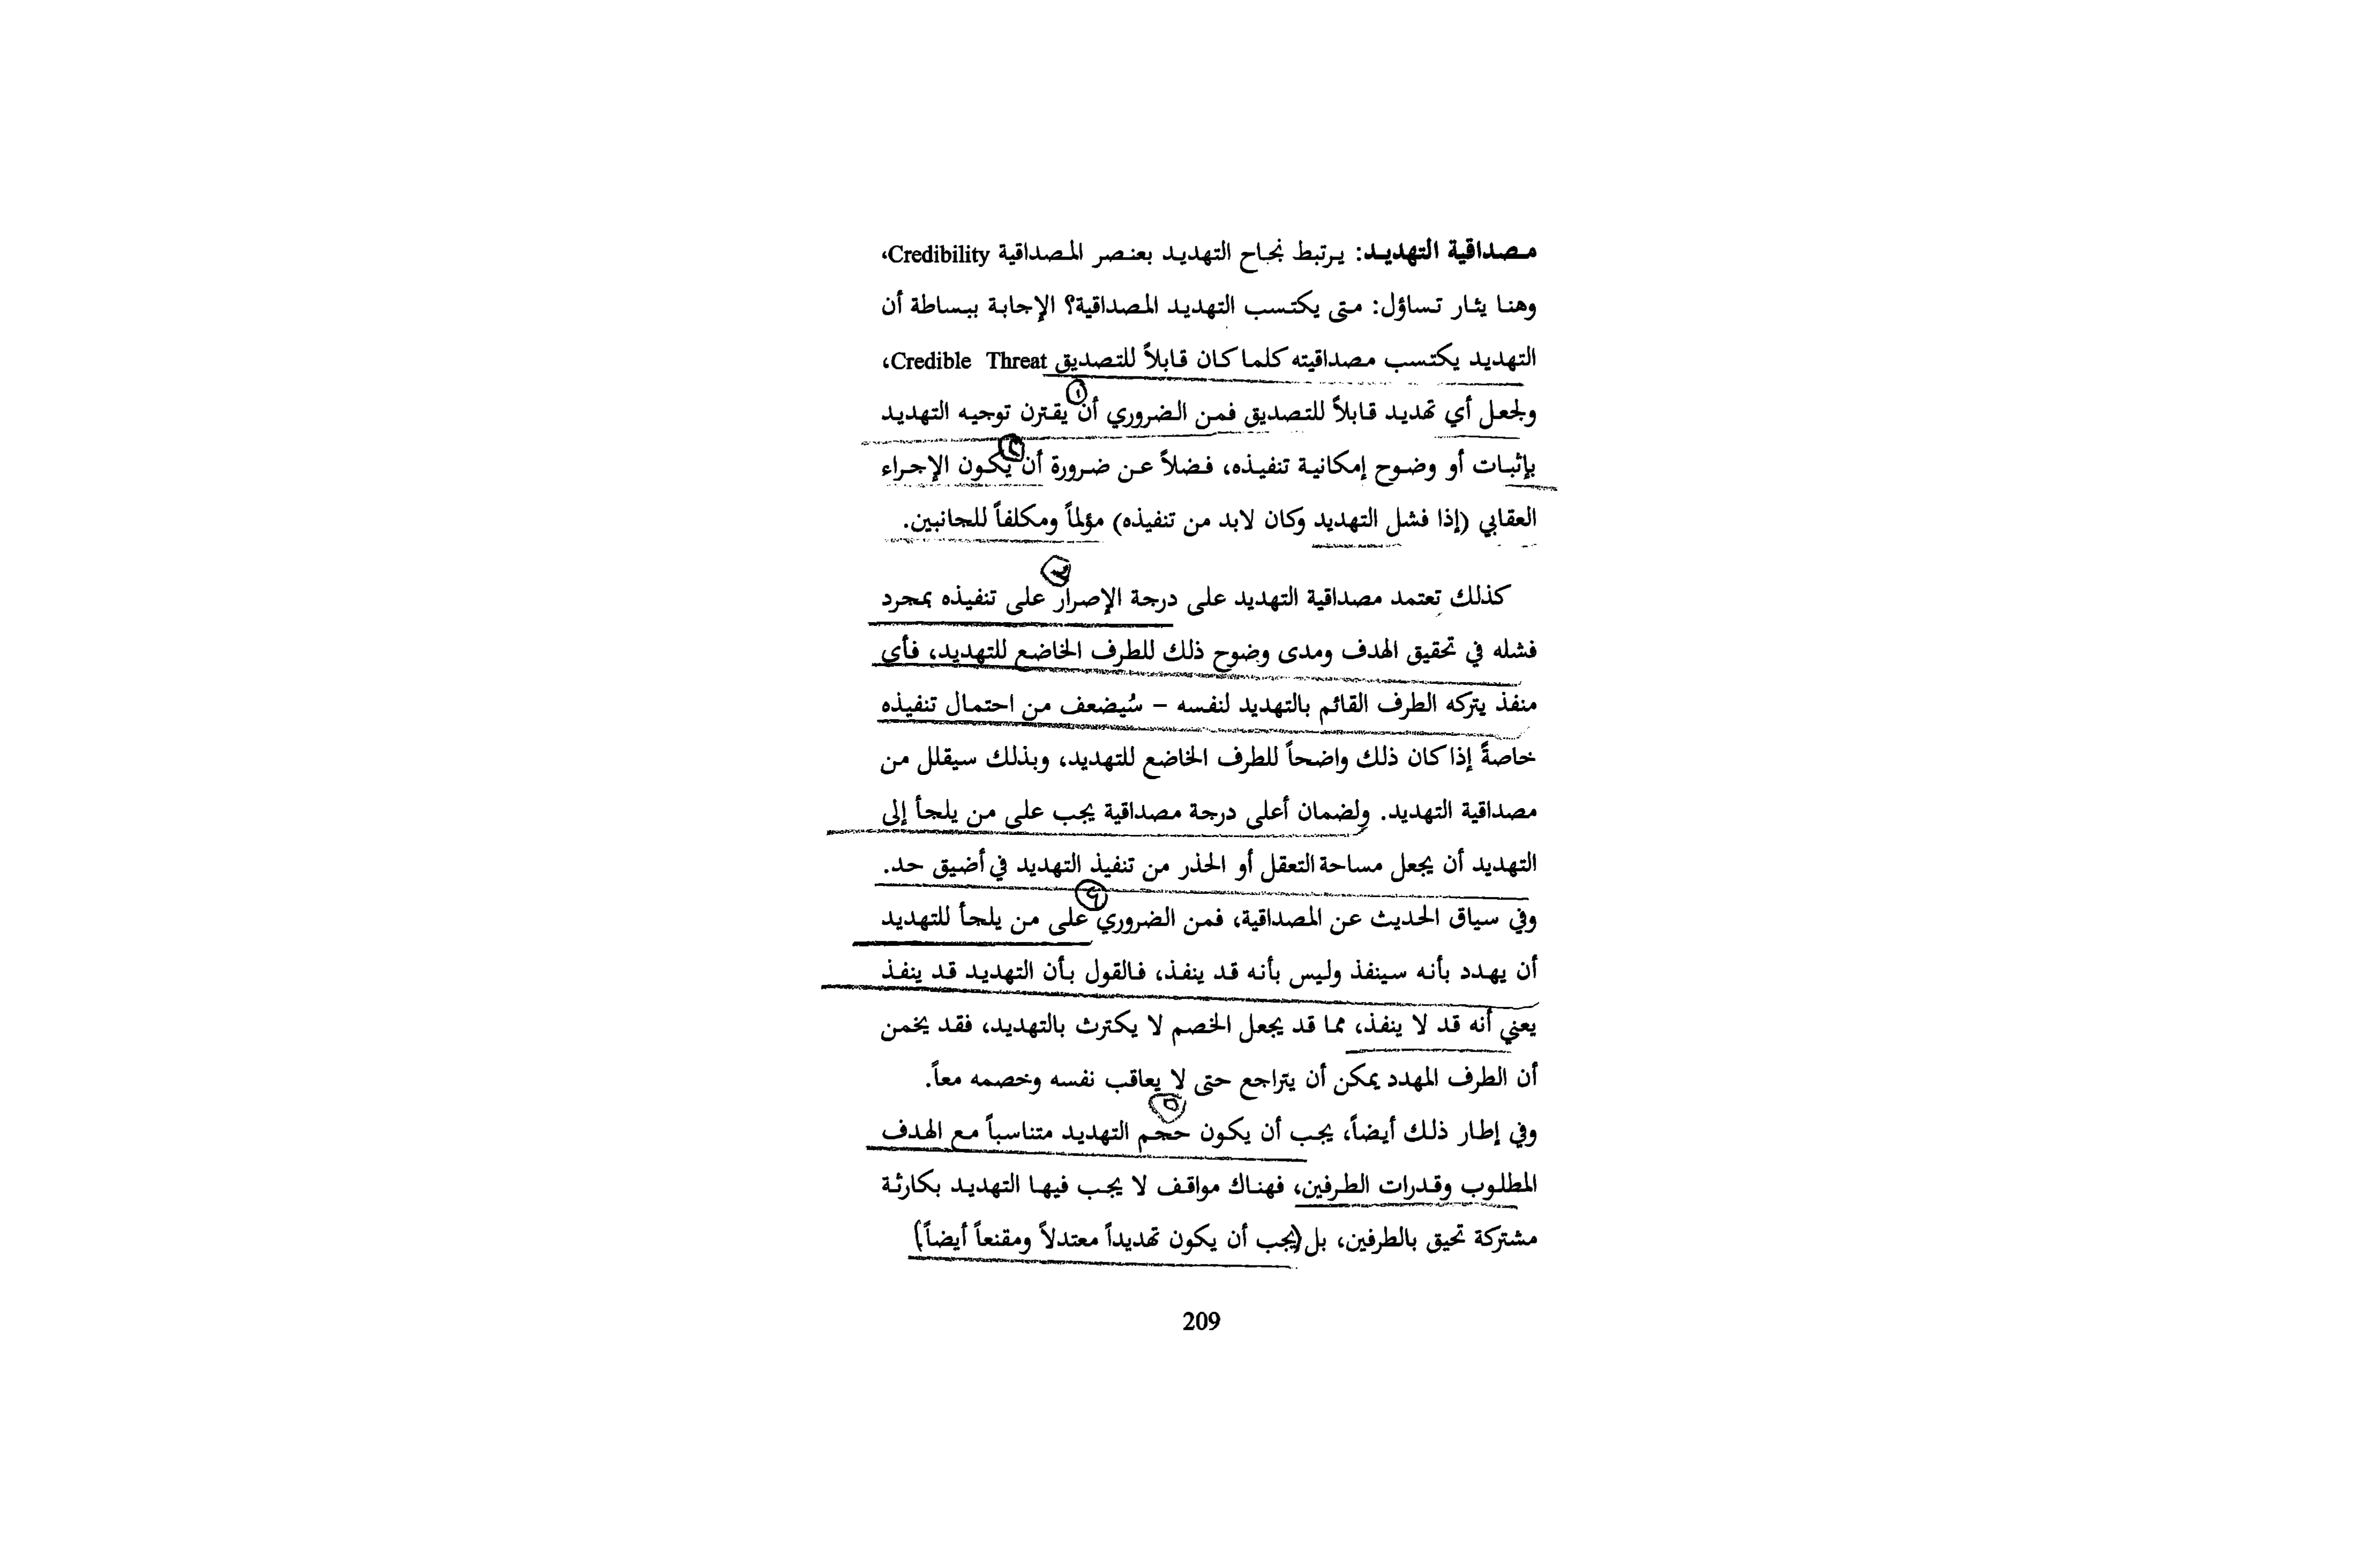 مصداقية التهديد: يرتبط نجاح التهديد بعنصر المصداقية Credibility،
وهنا يثار تساؤل: متى يكتسب التهديد المصداقية؟ الإجابة ببساطة أن
التهديد يكتسب مصداقيته كلما كان قابلاً للتصديق Credible Threat،
١
ولجعل أي تهديد قابلاً للتصديق فمن الضروري أن يقترن توجيه التهديد
٢
بإثبات أو وضوح إمكانية تنفيذه، فضلاً عن ضرورة أن يكون الإجراء
العقابي (إذا فشل التهديد وكان لابد من تنفيذه) مؤلماً ومكلفاً للجانبين.
٣
كذلك تعتمد مصداقية التهديد على درجة الإصرار على تنفيذه بمجرد
فشله في تحقيق الهدف ومدى وضوح ذلك للطرف الخاضع للتهديد، فأي
منفذ يتركه الطرف القائم بالتهديد لنفسه – سُيضعف من احتمال تنفيذه
خاصةً إذا كان ذلك واضحاً للطرف الخاضع للتهديد، وبذلك سيقلل من
مصداقية التهديد. ولضمان أعلى درجة مصداقية يجب على من يلجأ إلى
التهديد أن يجعل مساحة التعقل أو الحذر من تنفيذ التهديد في أضيق حد.
٤
وفي سياق الحديث عن المصداقية، فمن الضروري على من يلجأ للتهديد
أن يهدد بأنه سينفذ وليس بأنه قد ينفذ، فالقول بأن التهديد قد ينفذ
يعني أنه قد لا ينفذ، مما قد يجعل الخصم لا يكترث بالتهديد، فقد يخمن
أن الطرف المهدد يمكن أن يتراجع حتى لا يعاقب نفسه وخصمه معاً.
٥
وفي إطار ذلك أيضاً، يجب أن يكون حجم التهديد متناسباً مع الهدف
المطلوب وقدرات الطرفين، فهناك مواقف لا يجب فيها التهديد بكارثة
مشتركة تحيق بالطرفين، بل (يجب أن يكون تهديداً معتدلاً ومقنعاً أيضاً.)
209